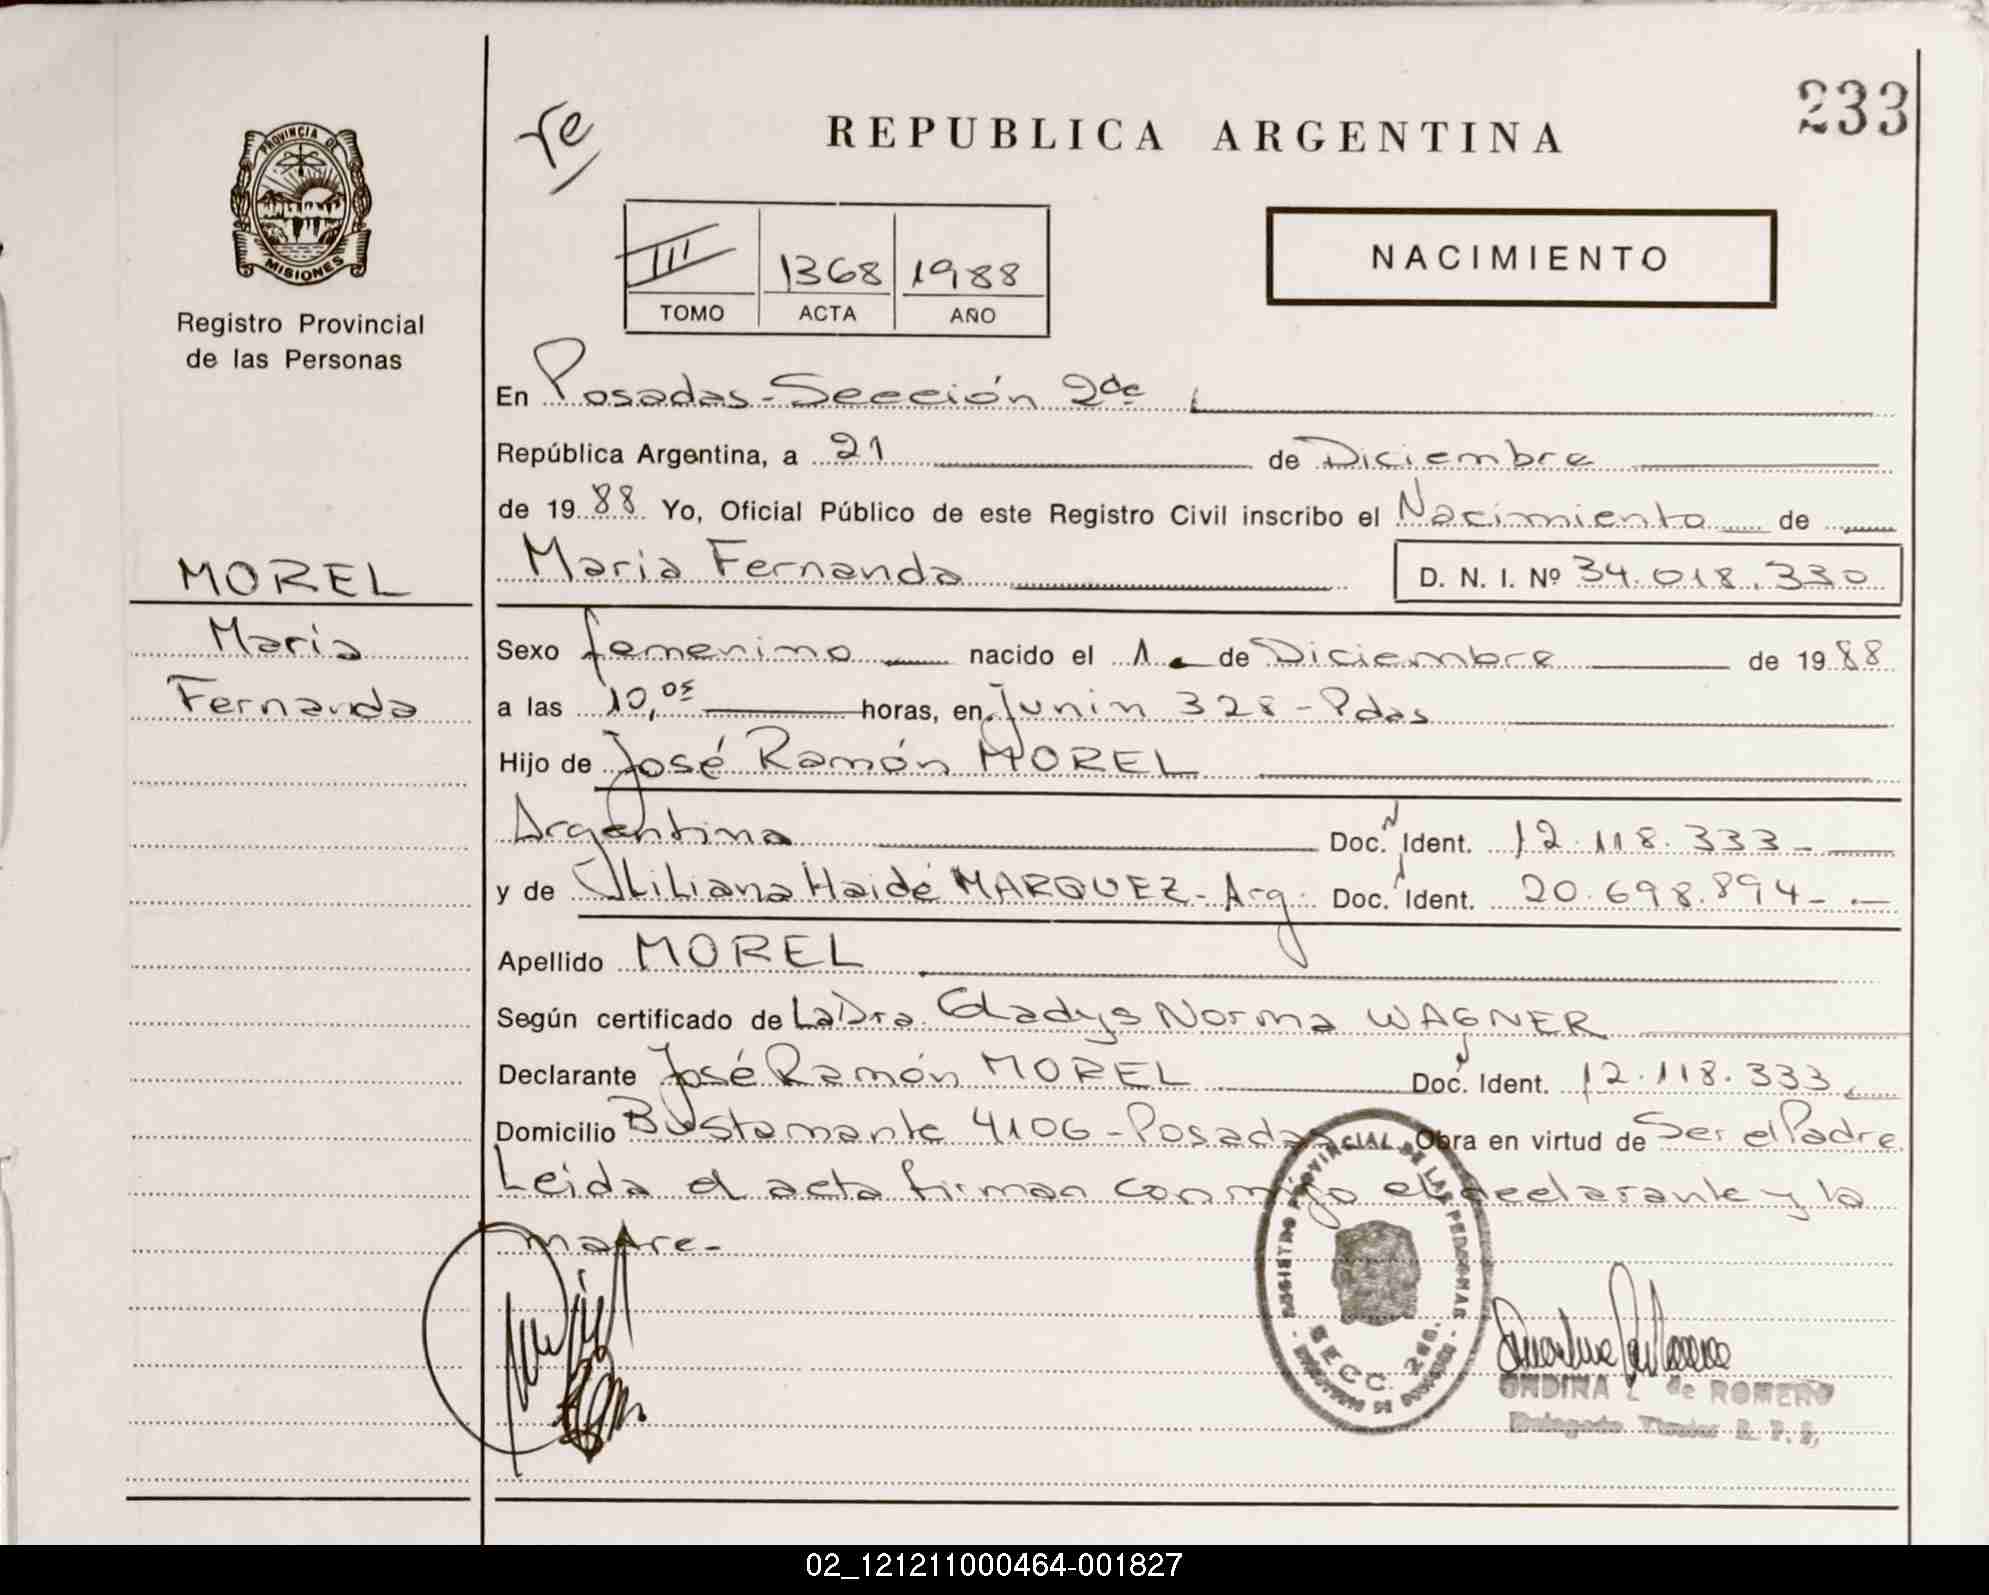 233
re
REPUBLICA ARGENTINA
PROVINCIA DE
MISIONES
Registro Provincial
de las Personas
III 1368 1988
TOMO ACTA AÑO
NACIMIENTO
En Posadas-Sección 2da
República Argentina, a 21 de Diciembre
de 1988 Yo, Oficial Público de este Registro Civil inscribo el Nacimiento de
Maria Fernanda D. N. I. Nº 34.018.330
MOREL
Maria
Fernanda
Sexo femenino nacido el 1 de Diciembre de 1988
a las 10,05 horas, en Junin 328-Pdas
Hijo de José Ramón MOREL
Argentina Doc. Ident. 12.118.333-
y de Liliana Haidé MARQUEZ-Arg. Doc. Ident. 20.698.894-
Apellido MOREL
Según certificado de La Dra. Gladys Norma WAGNER
Declarante José Ramón MOREL Doc. Ident. 12.118.333
Domicilio Bustamante 4106-Posadas Obra en virtud de Ser el Padre
Leida el acta firman conmigo el declarante y la
madre-
REGISTRO PROVINCIAL DE LAS PERSONAS
SECC. 2da.
ONDINA L de ROMERO
Delegado Titular R. P. P.
02_121211000464-001827